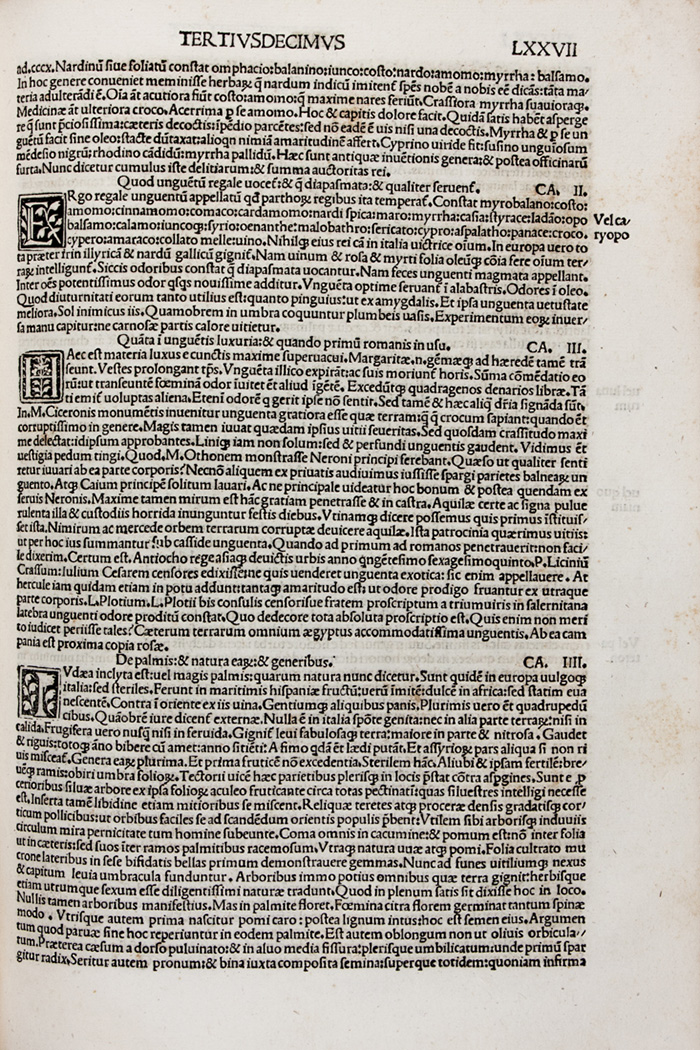 TERTIVSDECIMVS
LXXVII
ad.cccx.Nardinũ siue foliatũ constat omphacio:balanino:iunco:costo:nardo:amomo:myrrha:balsamo.
In hoc genere conueniet meminisse herbaȝ q̃ nardum indicũ imitent̃ spẽs nobẽ a nobis eẽ dicãs:tãta ma/
teria adulterãdi ẽ.Oĩa ãt acutiora fiũt costo:amomo:q̃ maxime nares feriũt.Crassiora myrrha suauioraq̨.
Medicinæ ãt ulteriora croco.Acerrima p se amomo.Hoc & capitis dolore facit.Quidã satis habẽt asperge
re q̃ sunt p̃ciosissima:cæteris decoctis:ĩpẽdio parcẽtes:sed nõ eadẽ ẽ uis nisi una decoctis.Myrrha & p se un
guẽtũ facit sine oleo:stacte dũtaxat:alioqn nimiã amaritudinẽ affert.Cyprino uiride fit:susino unguiosum
mẽdesio nigrũ:rhodino cãdidũ:myrrha pallidũ.Hæc sunt antiquæ inuẽtionis genera:& postea officinarũ
furta.Nunc dicetur cumulus iste delitiarum:& summa auctoritas rei.
Quod unguẽtũ regale uocef:& q̃ diapasmata:& qualiter seruenf.	CA. II.
ERgo regale unguentũ appellatũ qđ parthoȝ regibus ita temperaf.Constat myrobalano:costo:
amomo:cinnamomo:comaco:cardamomo:nardi spica:maro:myrrha:casia:styrace:ladão:opo
balsamo:calamo:iuncoq̨:syrio:oenanthe:malobathro:sericato:cypro:aspalatho:panace:croco.
cypero:amaraco:collato melle:uino.Nihilq̨ eius rei cã in italia uictrice oĩum.In europa uero to
Vel ca/
ryopo
ta præter irin illyricã & nardũ gallicũ gignif.Nam uinum & rosa & myrti folia oleũq̨ cõia fere oĩum ter/
raȝ intelligunf.Siccis odoribus constat q̃ diapasmata uocantur.Nam feces unguenti magmata appellant.
Inter oẽs potentissimus odor qsq̨ nouissime additur.Vnguẽta optime seruanf ĩ alabastris.Odores ĩ oleo.
Quod diuturnitati eorum tanto utilius est:quanto pinguius:ut ex amygdalis.Et ipsa unguenta uetustate
meliora.Sol inimicus iis.Quamobrem in umbra coquuntur plumbeis uasis.Experimentum eoȝ inuer/
sa manu capitur:ne carnosæ partis calore uitietur.
Quãta ĩ unguẽtis luxuria:& quando primũ romanis in usu.	CA. III.
HAec est materia luxus e cunctis maxime superuacui.Margaritæ.n.gẽmæq̨ ad hæredẽ tamẽ trã
seunt.Vestes prolongant tp̃s.Vnguẽta illico expirãt:ac suis moriunf horis.Sũma cõmẽdatio eo
rũ:ut transeuntẽ fœmina odor iuitet ẽt aliud igẽtẽ.Excedũtq̨ quadragenos denarios libræ.Tã
ti emif uoluptas aliena.Etenĩ odorẽ q gerit ipse nõ sentit.Sed tamẽ & hæc aliq̃ dr̃ia signãda sũt.
In.M.Ciceronis monumẽtis inuenitur unguenta gratiora esse quæ terram:q̃ q̃ crocum sapiant:quando ẽt
corruptissimo in genere.Magis tamen iuuat quædam ipsius uitii seueritas.Sed quosdam crassitudo maxi
me delectat:idipsum approbantes.Liniq̨ iam non solum:sed & perfundi unguentis gaudent.Vidimus ẽt
uestigia pedum tingi.Quod.M.Othonem monstrasse Neroni principi ferebant.Quæso ut qualiter senti
retur iuuari ab ea parte corporis?Necnõ aliquem ex priuatis audiuimus iussisse spargi parietes balneaȝ un
guento.Atq̨ Caium principẽ solitum lauari.Ac ne principale uideatur hoc bonum & postea quendam ex
seruis Neronis.Maxime tamen mirum est hãc gratiam penetrasse & in castra.Aquilæ certe ac signa pulue
rulenta illa & custodiis horrida inunguntur festis diebus.Vtinamq̨ dicere possemus quis primus istituis/
set ista.Nimirum ac mercede orbem terrarum corruptæ deuicere aquilæ.Ista patrocinia quærimus uitiis:
ut per hoc ius summantur sub casside unguenta.Quando ad primum ad romanos penetrauerit:non faci/
le dixerim.Certum est.Antiocho rege asiaq̨ deuictis urbis anno q̃ngẽtesimo sexagesimoquinto.P.Liciniũ
Crassum:Iulium Cesarem censores edixisse:ne quis uenderet unguenta exotica:sic enim appellauere.At
hercule iam quidam etiam in potu addunt:tantaq̨ amaritudo est:ut odore prodigo fruantur ex utraque
parte corporis.L.Plotium.L.Plotii bis consulis censorisue fratrem proscriptum a triumuiris in salernitana
latebra unguenti odore proditũ constat.Quo dedecore tota absoluta proscriptio est.Quis enim non meri
to iudicet periisse tales?Cæterum terrarum omnium ægyptus accommodatissima unguentis.Ab ea cam
pania est proxima copia rosæ.
De palmis:& natura eaȝ:& generibus.	CA. IIII.
IVdæa inclyta est:uel magis palmis:quarum natura nunc dicetur.Sunt quidẽ in europa uulgoq̨
italia:sed steriles.Ferunt in maritimis hispaniæ fructũ:uerũ imitẽ:dulce in africa:sed statim eua
nescentẽ.Contra ĩ oriente ex iis uina.Gentiumq̨ aliquibus panis.Plurimis uero ẽt quadrupedũ
cibus.Quãobrẽ iure dicenf externæ.Nulla ẽ in italia spõte genita:nec in alia parte terraȝ:nisi in
calida.Frugifera uero nusq̃ nisi in feruida.Gignif leui sabulosaq̨ terra:maiore in parte & nitrosa. Gaudet
& riguis:totoq̨ ãno bibere cũ amet:anno sitiẽti:A fimo qdã ẽt lædi putãt.Et assyrioȝ pars aliqua si non ri
uis misceat.Genera eaȝ plurima.Et prima fruticẽ nõ excedentia.Sterilem hæc.Aliubi & ipsam fertilẽ:bre/
ueq̨ ramis:obiri umbra folioȝ.Tectorii uicẽ hæc parietibus plerisq̨ in locis p̃stat cõtra aspgines.Sunt e p
cerioribus siluæ arbore ex ipsa folioȝ aculeo fruticante circa totas pectinati:quas siluestres intelligi necesse
est.Inserta tamẽ libidine etiam mitioribus se miscent.Reliquæ teretes atq̨ proceræ densis gradatisq̨ cor/
ticum pollicibus:ut orbibus faciles se ad scandẽdum orientis populis p̃bent:Vtilem sibi arborisq̨ induuiis
circulum mira pernicitate tum homine subeunte.Coma omnis in cacumine:& pomum est:nõ inter folia
ut in cæteris:sed suos iter ramos palmitibus racemosum.Vtraq̨ natura uuæ atq̨ pomi.Folia cultrato mu
crone lateribus in sese bifidatis bellas primum demonstrauere gemmas.Nunc ad funes uitiliumq̨ nexus
& capitum leuia umbracula funduntur. Arboribus immo potius omnibus quæ terra gignit:herbisque
etiam utrumque sexum esse diligentissimi naturæ tradunt.Quod in plenum satis sit dixisse hoc in loco.
Nullis tamen arboribus manifestius.Mas in palmite floret.Fœmina citra florem germinat tantum spinæ
modo. Vtrisque autem prima nascitur pomi caro:postea lignum intus:hoc est semen eius.Argumen
tum quod paruæ sine hoc reperiuntur in eodem palmite.Est autem oblongum non ut oliuis orbicula/
tum.Præterea cæsum a dorso puluinato:& in aluo media fissura:plerisque umbilicatum:unde primũ spar
gitur radix.Seritur autem pronum:& bina iuxta composita semina:superque totidem:quoniam infirma